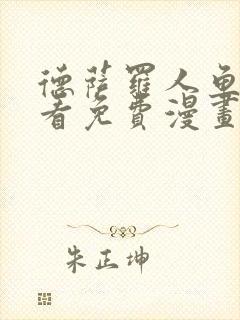 德薩羅人魚
看免費漫畫
朱正坤